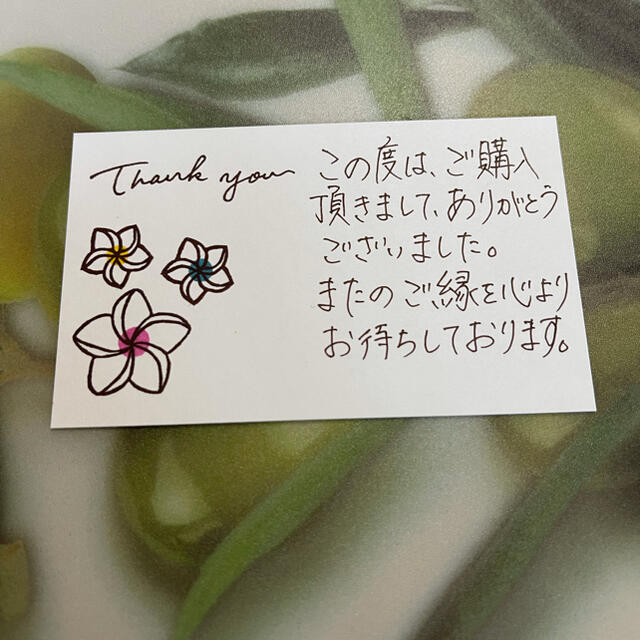 Thank you
この度は、ご購入
頂きまして、ありがとう
ございました。
またのご縁を心より
お待ちしております。